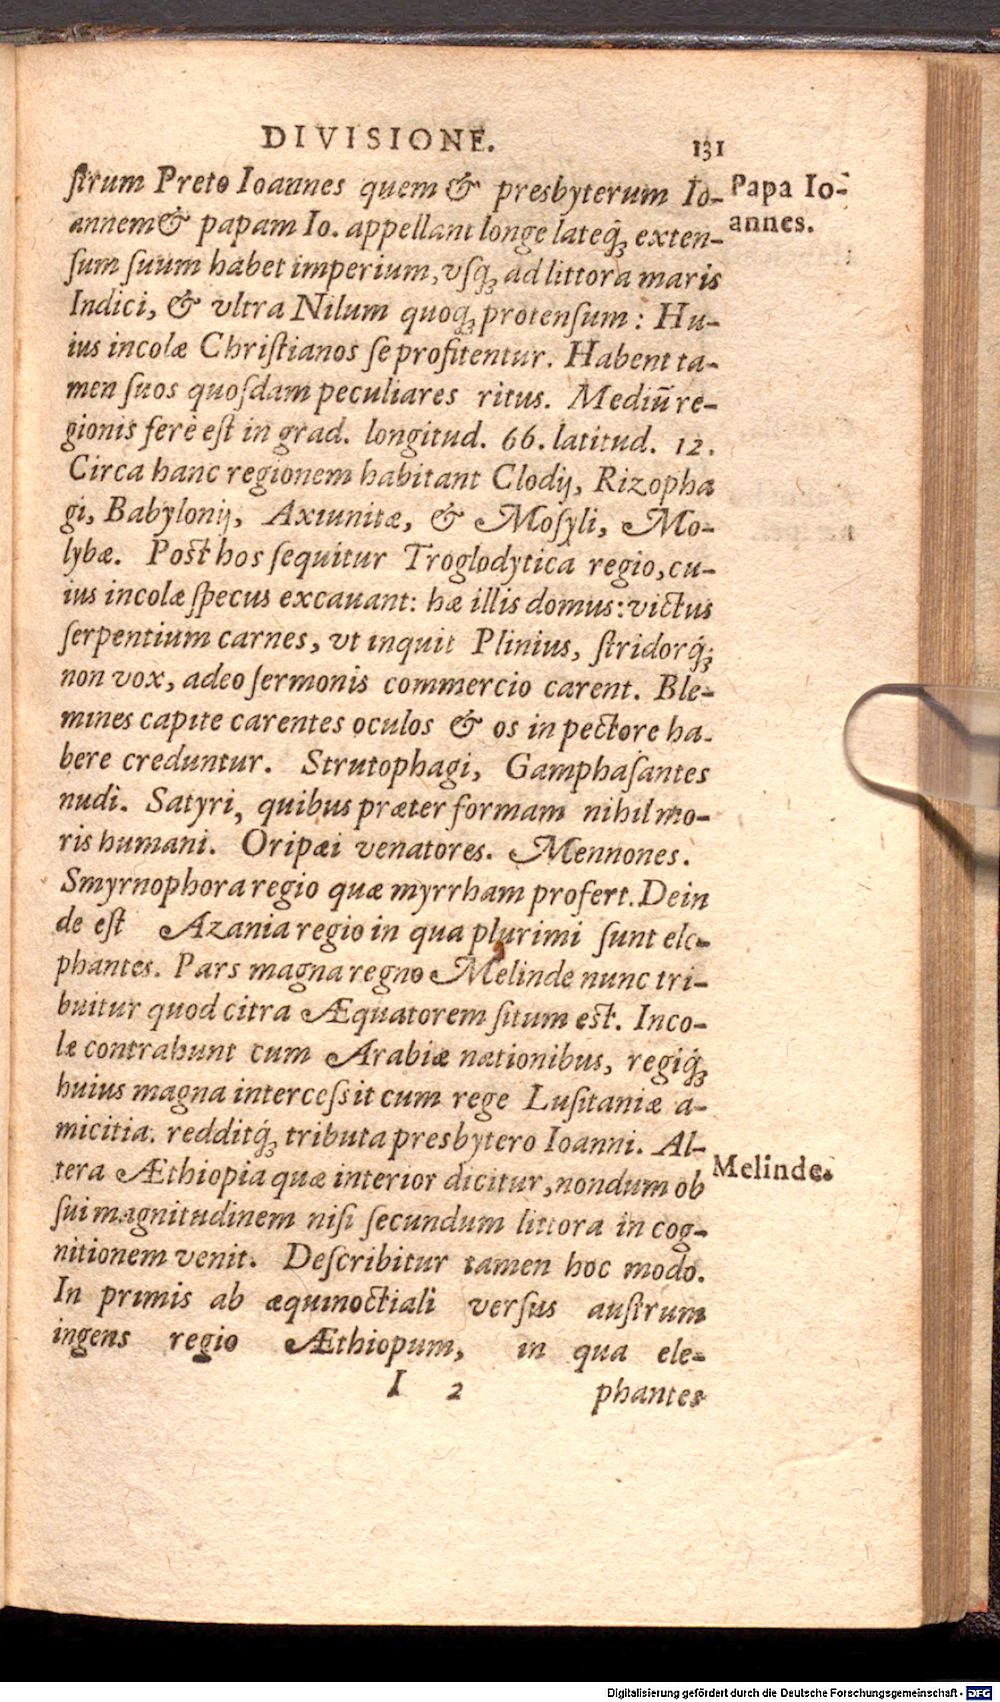 DIVISIONE. 131
ſtrum Preto Ioannes quem & presbyterum Io-
Papa Io-
annem & papam Io. appellant longe lateq́; exten-
annes.
ſum ſuum habet imperium, vſq́; ad littora maris
Indici, & vltra Nilum quoq́; protenſum: Hu-
ius incolæ Chriſtianos ſe profitentur. Habent ta-
men ſuos quoſdam peculiares ritus. Mediũ re-
gionis ferè eſt in grad. longitud. 66. latitud. 12.
Circa hanc regionem habitant Clodij, Rizopha
gi, Babylonij, Axiunitæ, & Moſyli, Mo-
lybæ. Poſt hos ſequitur Troglodytica regio, cu-
ius incolæ ſpecus excauant: hæ illis domus: victus
ſerpentium carnes, vt inquit Plinius, ſtridorq́;
non vox, adeo ſermonis commercio carent. Ble-
mines capite carentes oculos & os in pectore ha-
bere creduntur. Strutophagi, Gamphaſantes
nudi. Satyri, quibus præter formam nihil mo-
ris humani. Oripæi venatores. Mennones.
Smyrnophora regio quæ myrrham profert. Dein
de eſt Azania regio in qua plurimi ſunt ele-
phantes. Pars magna regno Melinde nunc tri-
buitur quod citra Æquatorem ſitum eſt. Inco-
læ contrahunt cum Arabiæ nationibus, regiq́;
huius magna interceſsit cum rege Luſitaniæ a-
micitia: redditq́; tributa presbytero Ioanni. Al-
tera Æthiopia quæ interior dicitur, nondum ob
Melinde.
ſui magnitudinem niſi ſecundum littora in cog-
nitionem venit. Deſcribitur tamen hoc modo.
In primis ab æquinoctiali verſus auſtrum
ingens regio Æthiopum, in qua ele-
I 2 phantes
Digitalisierung gefördert durch die Deutsche Forschungsgemeinschaft - DFG